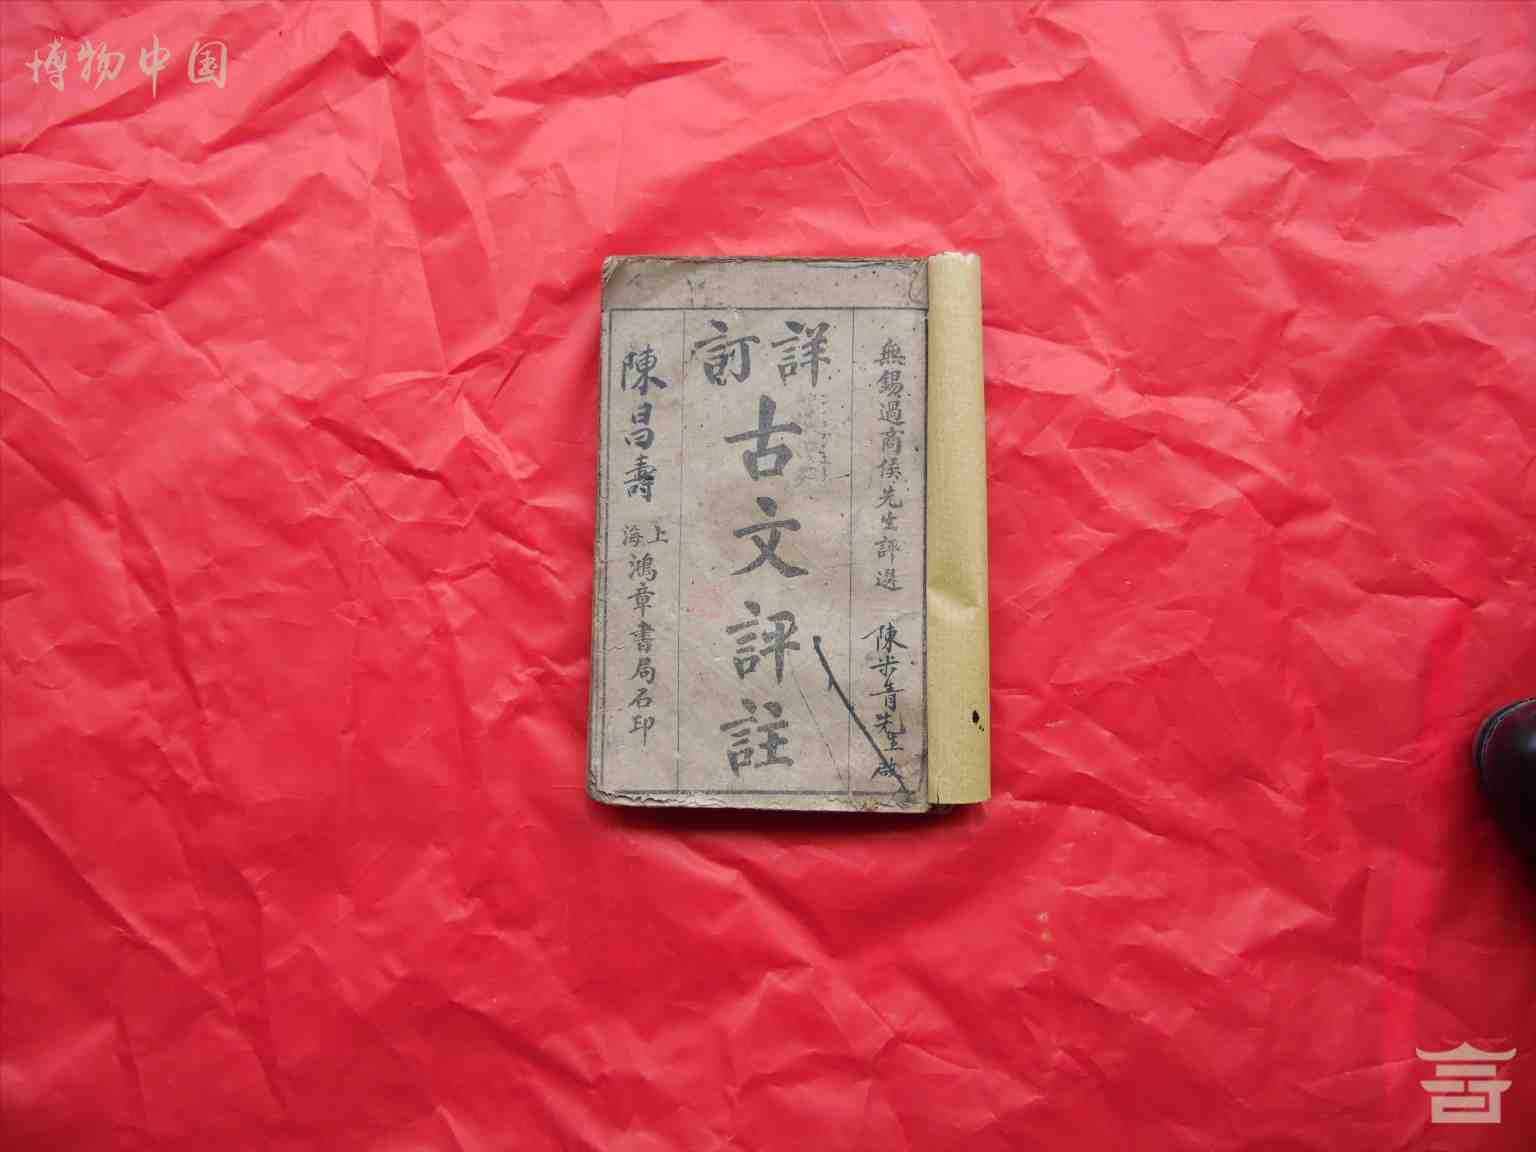 博物中国
無錫過商侯先生評選
陳步青先生啟
詳訂
古文評註
陳昌壽
上海
鴻章書局石印